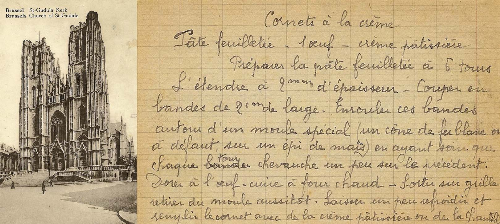 Brussel. St-Gudula Kerk
Brussels, Church of St Gudule
Cornets à la crème
Pâte feuilletée - 1 œuf - crème pâtissière
Préparer la pâte feuilletée à 6 tours
L'étendre à 2 mm d'épaisseur - Couper en
bandes de 2 cm de large. Enrouler ces bandes
autour d'un moule spécial (un cône de fer blanc ou
à défaut sur un épi de maïs) en ayant soin que
chaque tour chevauche un peu sur le précédent.
Dorer à l'œuf - cuire à four chaud - Sortir sur grille
retirer du moule aussitôt. Laisser un peu refroidir et
remplir le cornet avec de la crème pâtissière ou de la